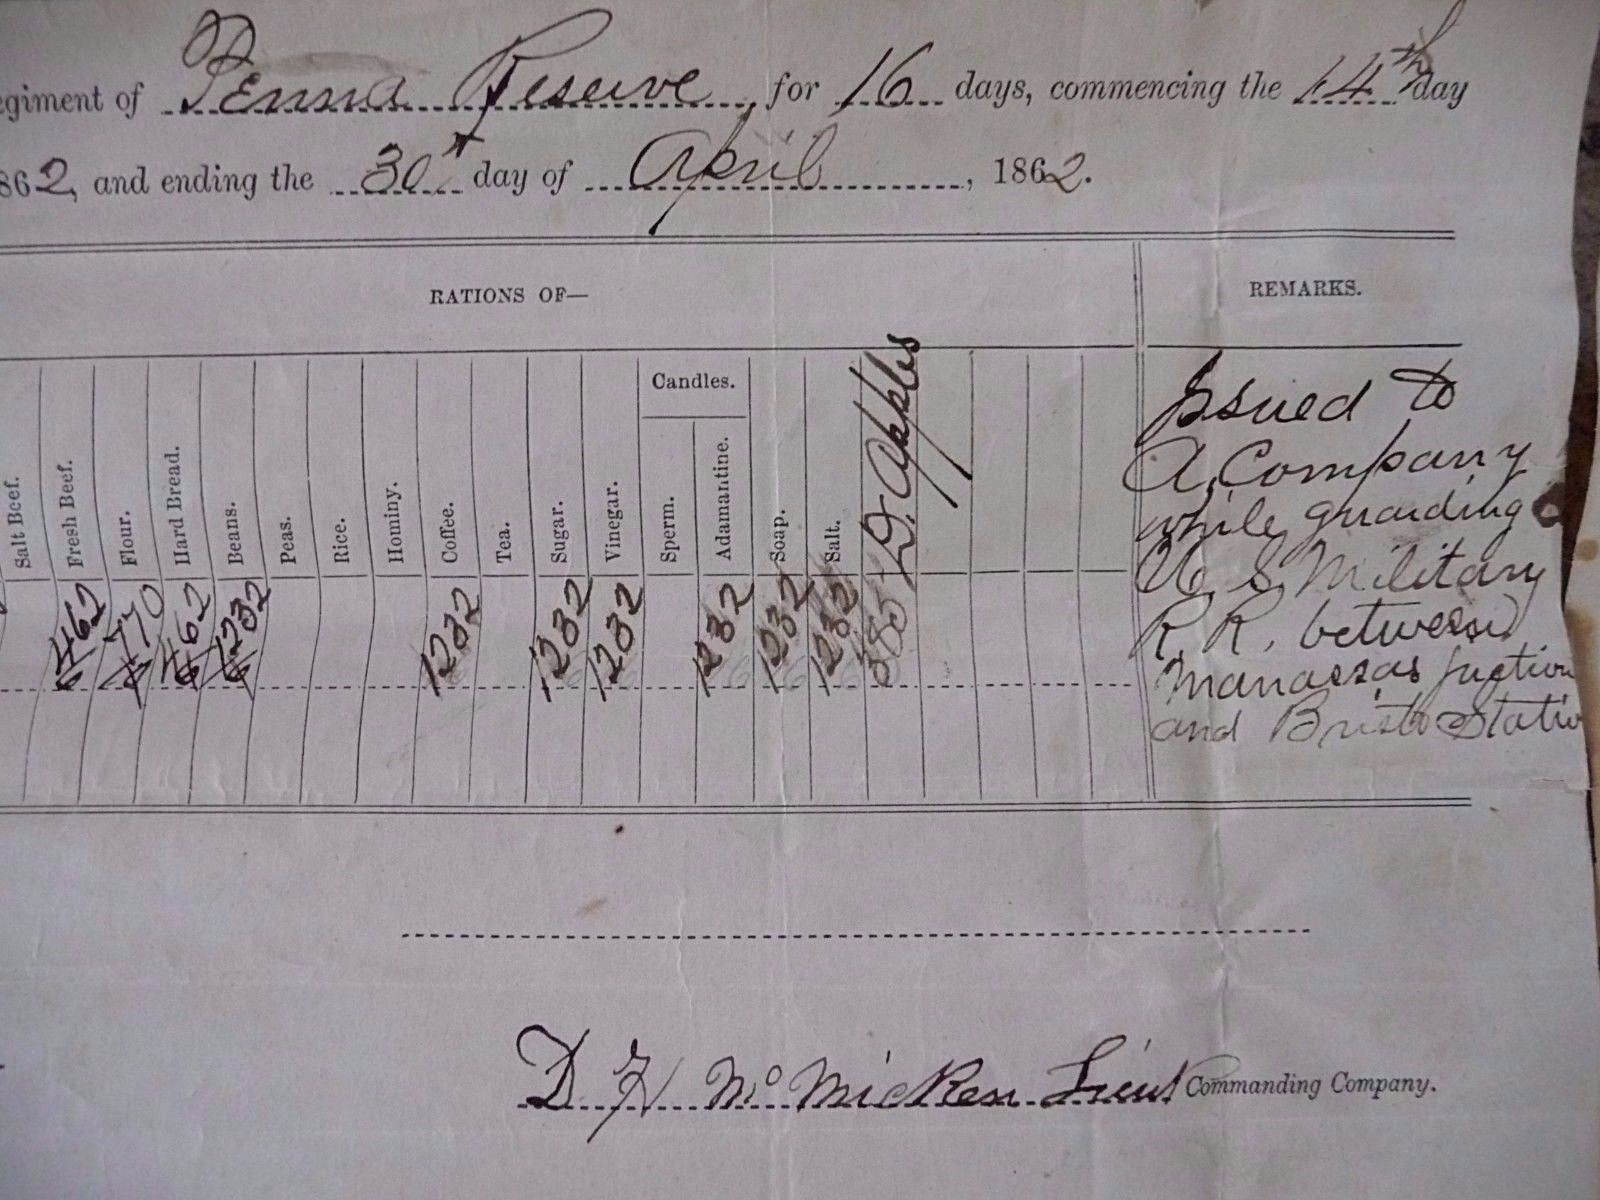 egiment of Penna Reserve, for 16 days, commencing the 14th day
862, and ending the 30 day of April, 1862.
RATIONS OF—
REMARKS.
Salt Beef.
Fresh Beef.
Flour.
Hard Bread.
Beans.
Peas.
Rice.
Hominy.
Coffee.
Tea.
Sugar.
Vinegar.
Candles.
Sperm.
Adamantine.
Soap.
Salt.
D. Apples
462
770
462
1232
1232
1232
1232
1232
1232
1232
Issued to
A, Company
while guarding
U, S, Military
R, R, between
Manassas Juction
and Bristo Statio
D. H McMicken Lieut Commanding Company.